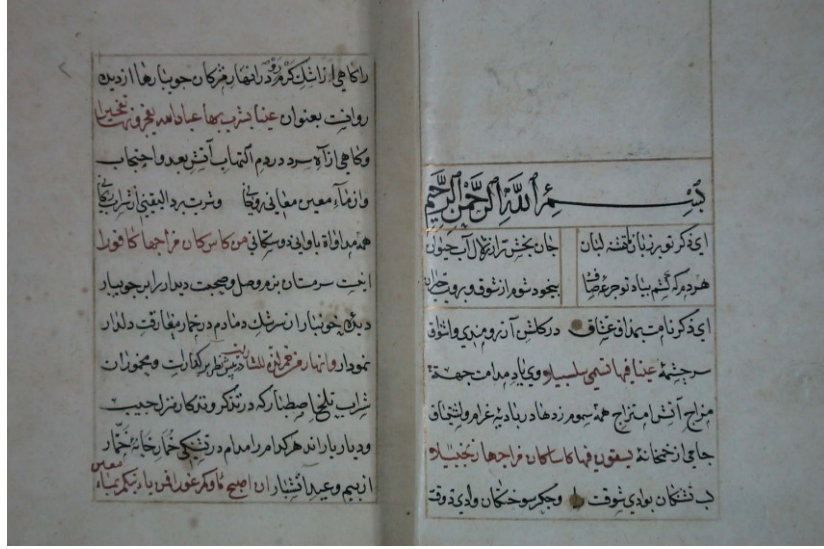 بسم الله الرحمن الرحيم
ای ذکر تو بر زبان تشنه لبان جان بخش تر از زلال آب حیوان
هر دم که کشم بیاد تو جرعه صاف بیخود شوم از شوق و برقص
ای ذکر نامت بمذاق عشاق در کلشن آرزومندی و اشواق
سرچشمهٔ عینا فیها تسمی سلسبیلا و وی یاد مدامت جهة
مزاج آتش امتزاج همه سموم زدهاء بادیهٔ غرام و اشتیاق
جامی از خمخانهٔ یسقون فیها کاسا کان مزاجها زنجبیلا
لب تشنکان بوادی شوقت را و جکر سوختکان وادی ذوقت
را کاهی از اشک کرم رو در انهار مژکان جویبارها از دیده
روانست بعنوان عینا یشرب بها عباد الله یفجرونها تفجیرا
و کاهی از آه سرد دردم التهاب آتش بعد و احتجاب
و از ماء معین معانی روحانی و شربت برد الیقین از شراب ریحانی
همه مداواة با اوانی دوستکانی من کاس کان مزاجها کافورا
سرمستان بزم وصل و صحبت دیدار را بر جویبار
دیدهٔ خونبار از سرشک دمادم در خمار مفارقت دلدار
نمودار و انهار من خمر لذة للشاربین در پیش نظر برکذارست و مخموران
شراب تلخ اصطبار که در تذکر و تذکار منزل حبیب
و دیار یار اند هر کدام را مدام در تشنکی خمار خانهٔ خمار
از بیم وعید ان اصبح ماؤکم غورا فمن یاتیکم بماء معین